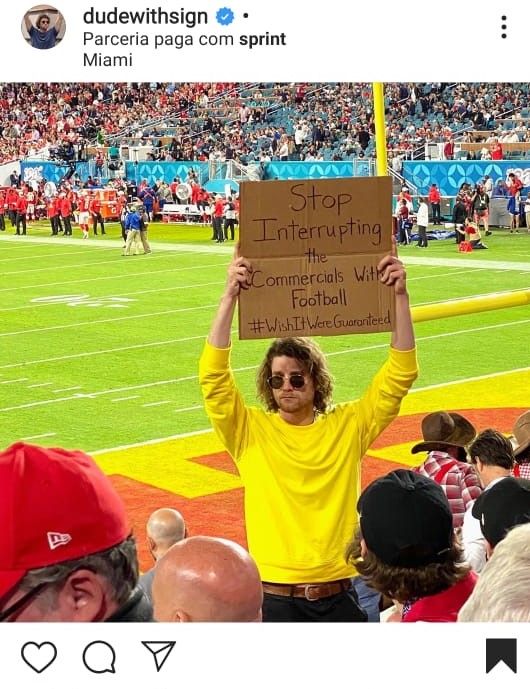 dudewithsign •
Parceria paga com sprint
Miami
Stop
Interrupting
the
Commercials With
Football
#WishItWereGuaranteed